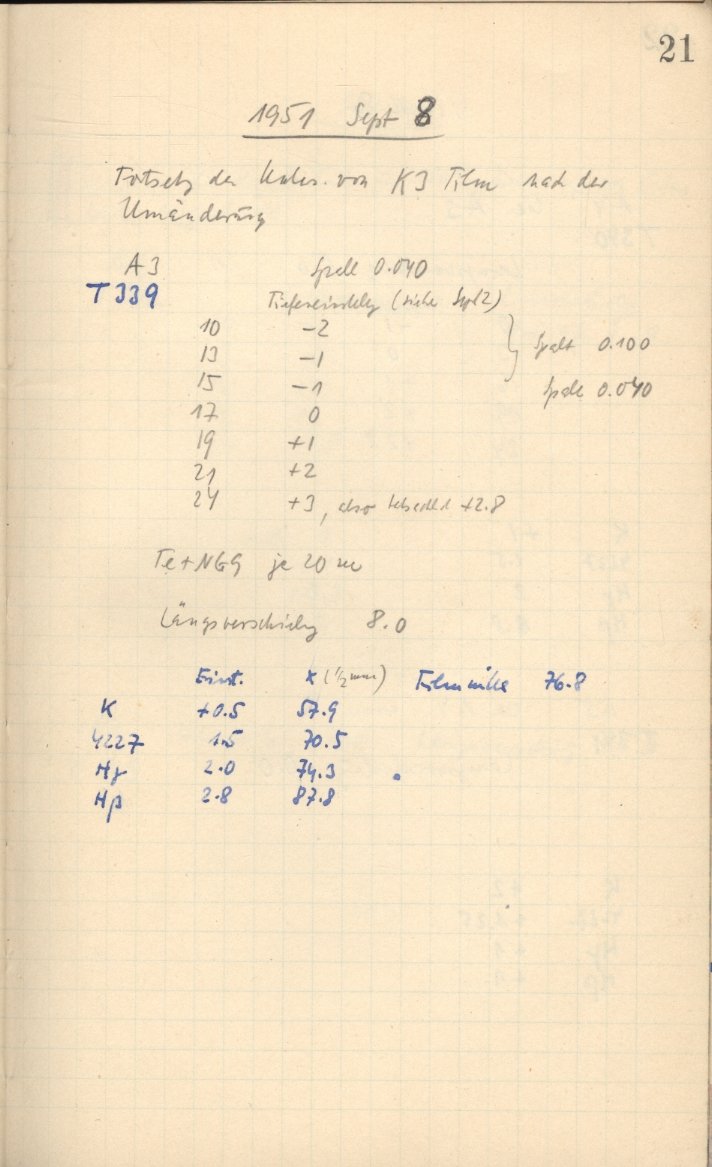 21
1951 Sept 8
Fortsetz der Unters. von K3 Film nach der
Umänderung
A3 Spalt 0.040
T339 Tiefeneinstellg (siehe Sept 2)
10 -2
13 -1 } Spalt 0.100
15 -1 Spalt 0.040
17 0
19 +1
21 +2
24 +3, also +2.8
Fe+NGG je 20 m
Längsverschiebg 8.0
Einst. x (1/2 mm) Filmmitte 76.8
K +0.5 57.9
4227 1.5 70.5
Hγ 2.0 74.3
Hβ 2.8 87.8